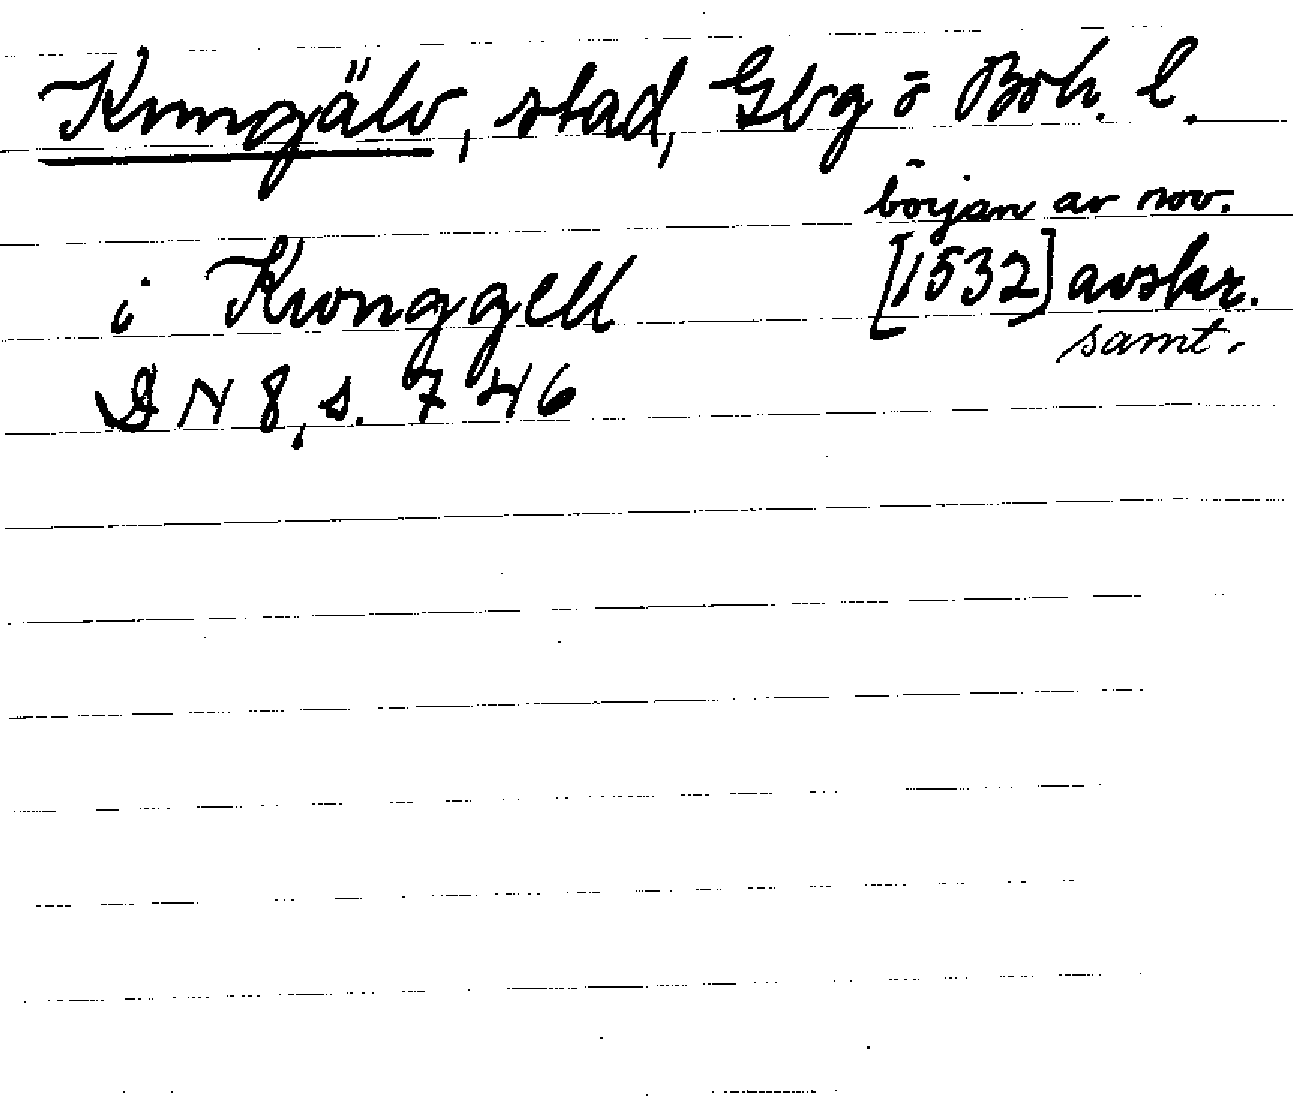 Kungälv, stad, Gbg o Boh. l.
början av nov.
i Kronggell [1532] avskr.
samt.
DN 8, s. 746